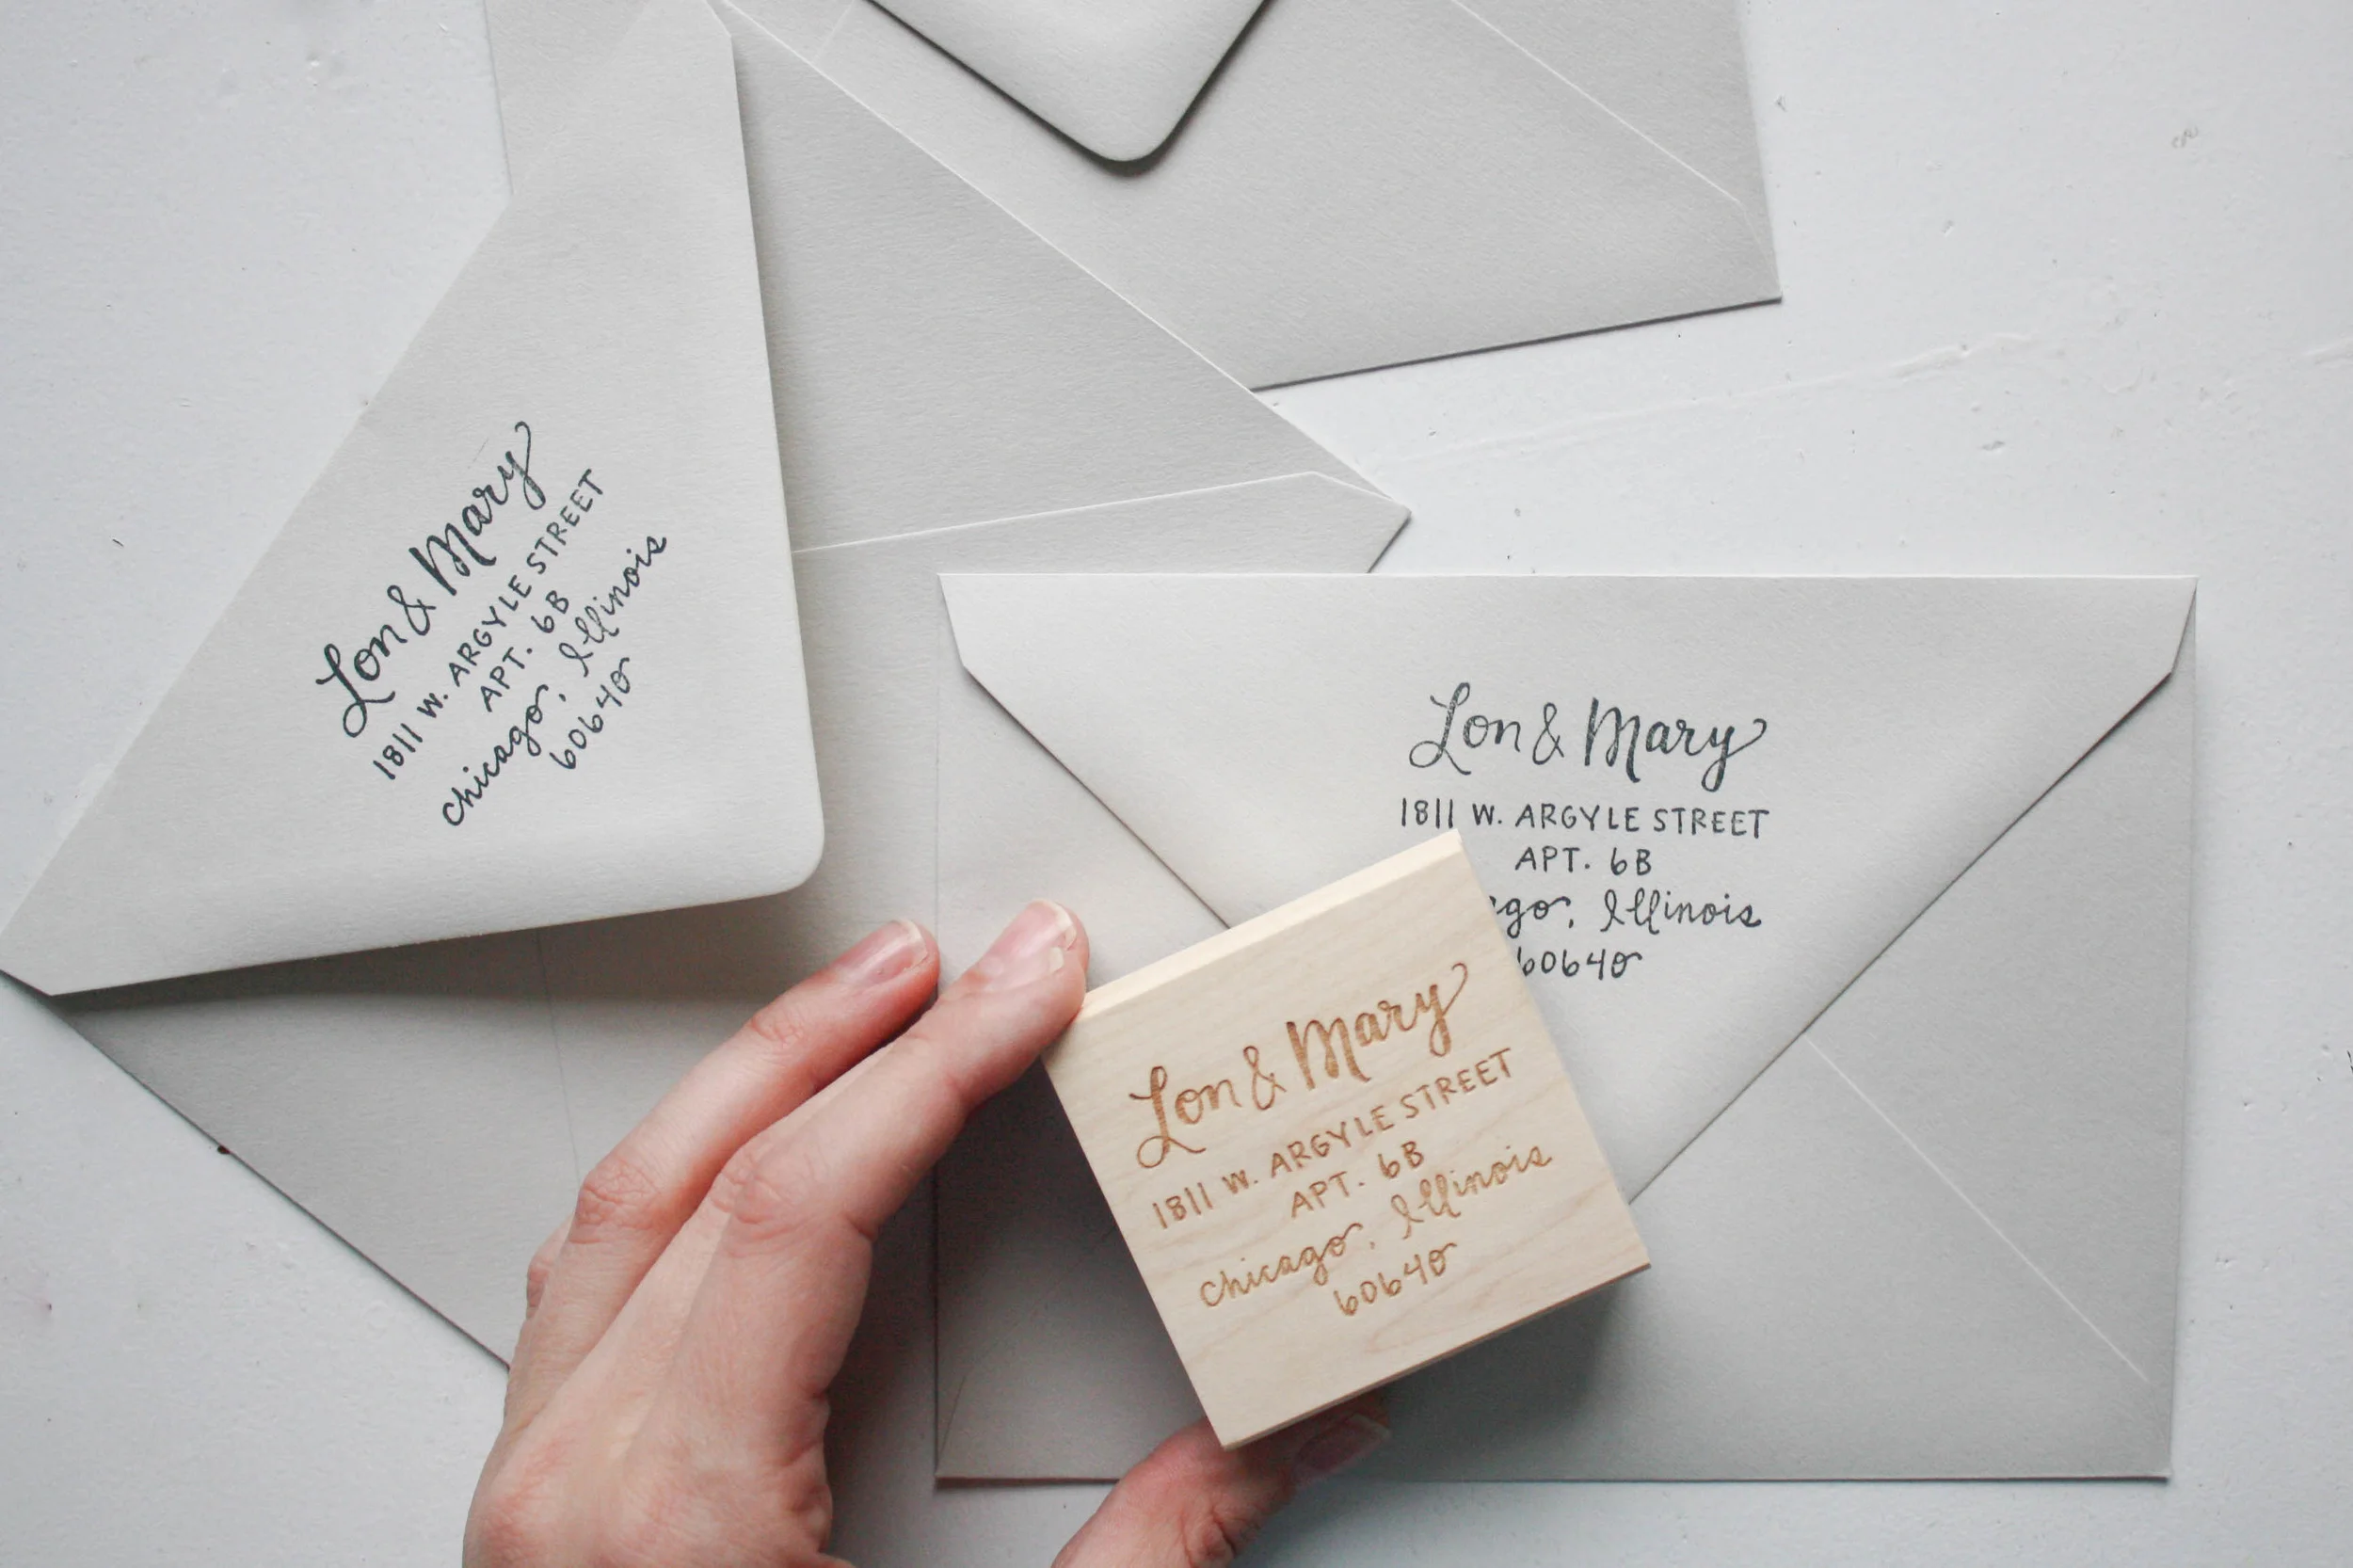 Lon & Mary
1811 W. ARGYLE STREET
APT. 6B
Chicago, Illinois
60640
Lon & Mary
1811 W. ARGYLE STREET
APT. 6B
ago, Illinois
60640
Lon & Mary
1811 W. ARGYLE STREET
APT. 6B
Chicago, Illinois
60640